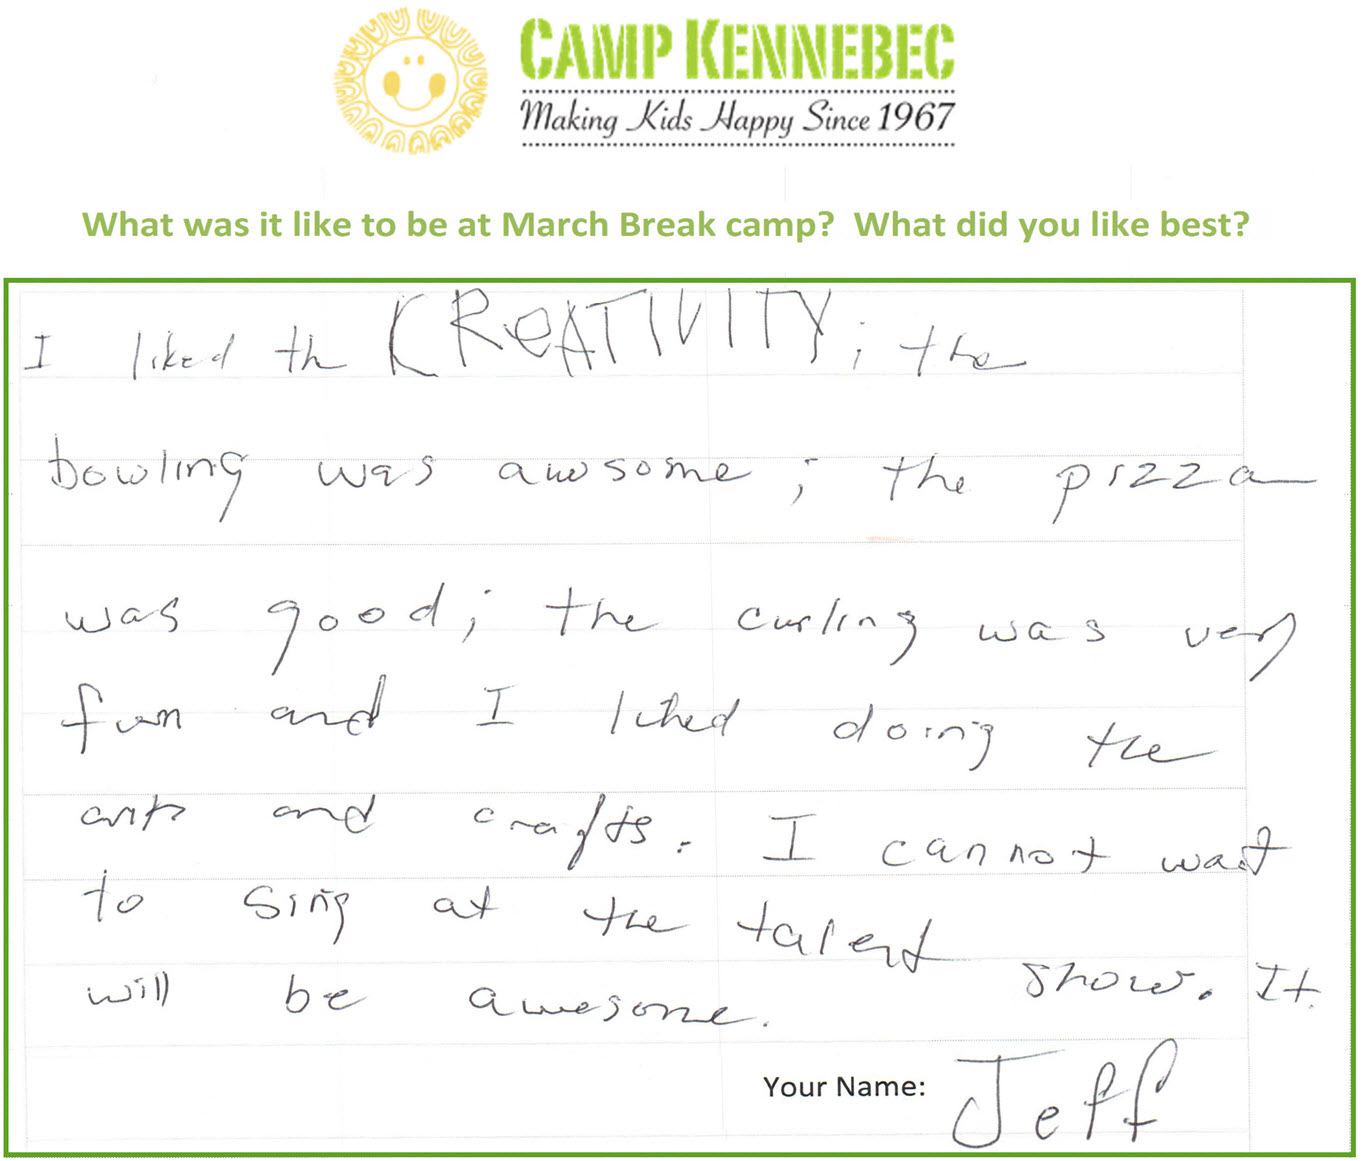 CAMP KENNEBEC
Making Kids Happy Since 1967
What was it like to be at March Break camp? What did you like best?
I liked th CREATIVITY; the
bowling was awsome; the pizza
was good; the curling was very
fun and I liked doing the
arts and crafts. I cannot wait
to sing at the talent show. It
will be awesome.
Your Name: Jeff